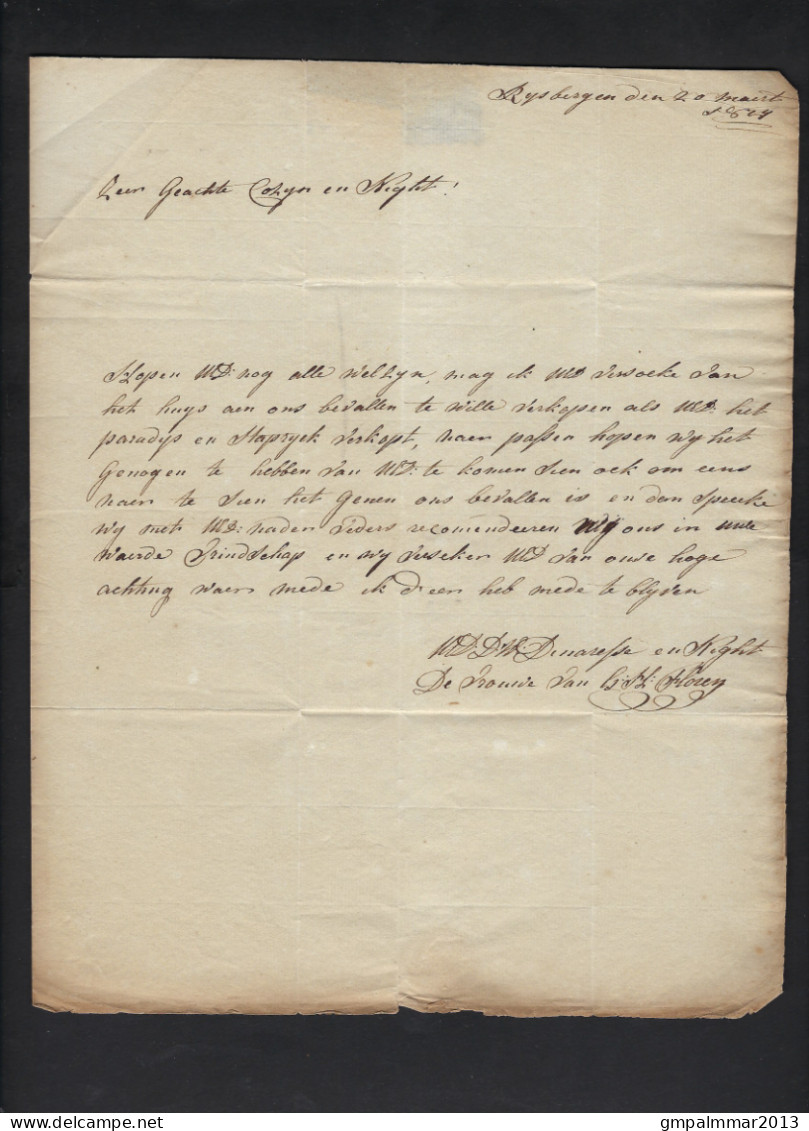 Rysbergen den 20 maert
Zeer Geachte Cozyn en Night!
Hopen WD: nog alle wel Zyn, mag ik WD versoeke van
het huys aen ons bevallen te wille verkopen als WD: het
paradys en Stapryck verkopt, naer passen hopen wy het
Genogen te hebben van WD: te komen sien ock om eens
naer te sien het Genen ons bevallen is en dan speecke
wy met WD: nader viders recomendeeren wy ons in uwe
waerde vrindschap en wy verseker WD van onse hoge
achting waer mede ik d'eer heb mede te blyven
WD D:W: Dinaresse en Night
De vrouwe van G: H: Floren
www.delcampe.net
gmpalmmar2013